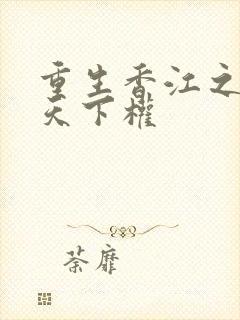 重生香江之
天下權
荼靡